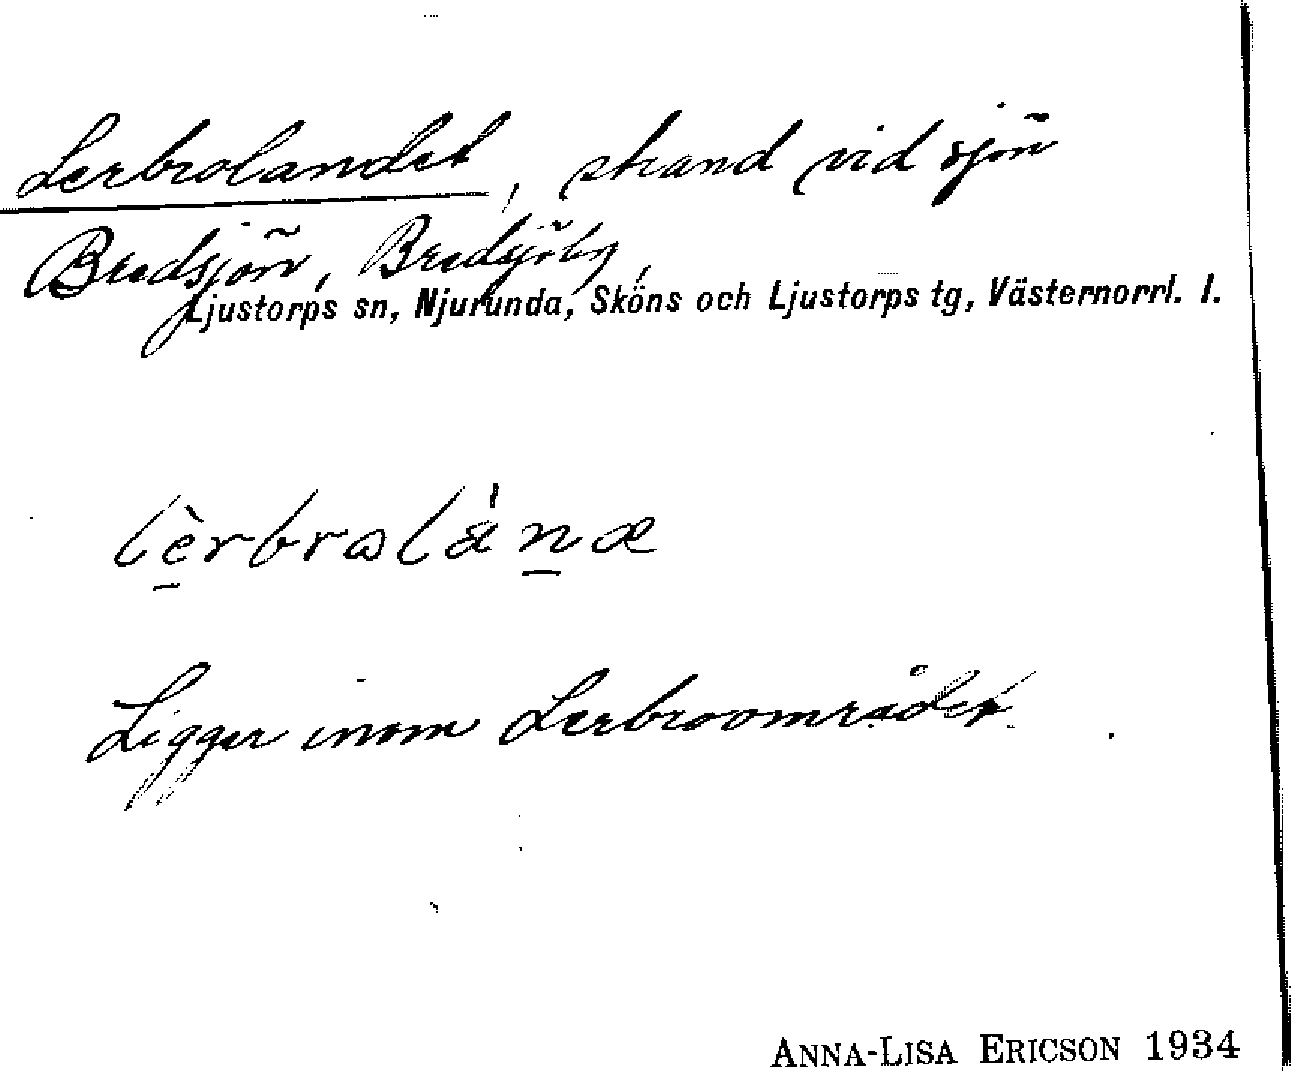 Lerbrolandet, strand vid sjön
Bredsjön, Bredsjöby,
Ljustorps sn, Njurunda, Sköns och Ljustorps tg, Västernorrl. l.
lèrbroláṉæ
Ligger inom Lerbroområdet.
ANNA-LISA ERICSON 1934